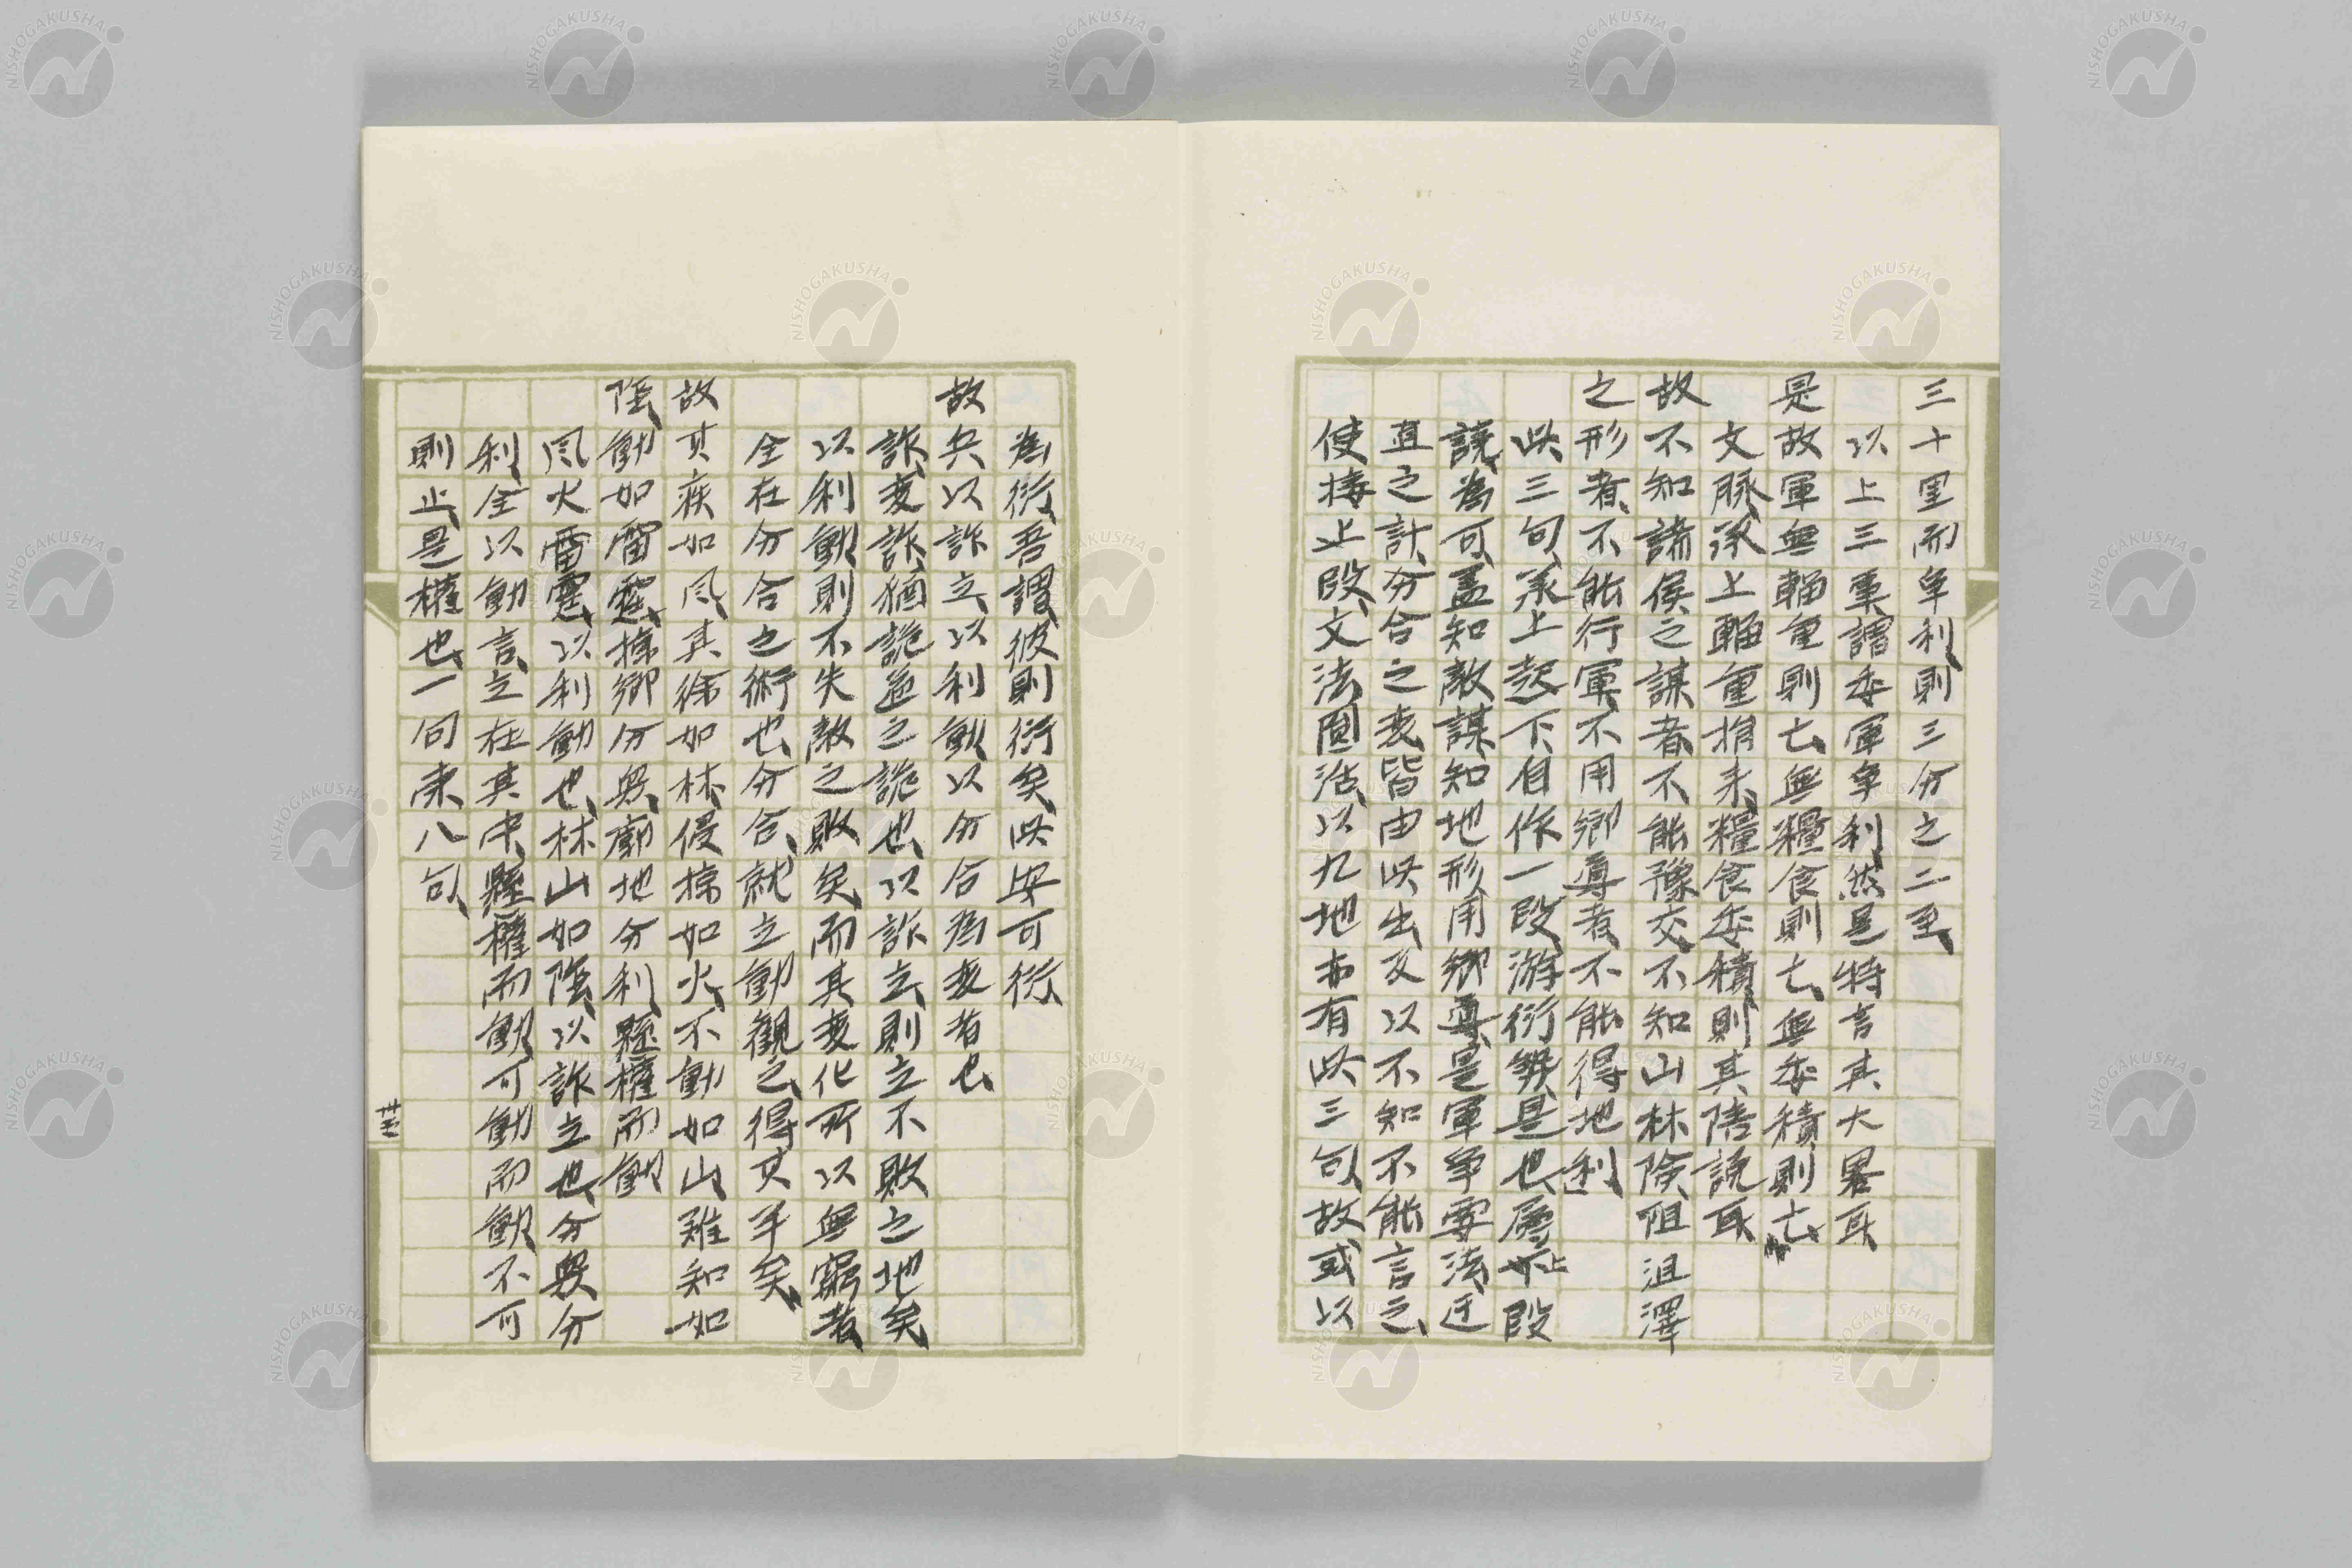 三十里而争利、則三分之二至、
以上三軍謂委軍争利、然是特言其大畧耳
是故軍無輜重則亡、無糧食則亡、無委積則亡、
文脉承上輜重捐来、糧食委積、則其陪説耳
故不知諸侯之謀者、不能豫交、不知山林險阻沮澤
之形者、不能行軍、不用鄉導者、不能得地利、
此三句、承上起下、自作一段、游衍弊是也、屬上段
説為可、蓋知敵謀、知地形、用鄉導、是軍争要法、迂
直之計、分合之変、皆由此出、又以不知不能言之、
使接上段、文法圓活、以九地亦有此三句、故或以
為衍、吾謂、彼則衍矣、此安可衍、
故兵以詐立、以利動、以分合為変者也、
詐、変詐、猶詭道之詭也、以詐立、則立不敗之地矣、
以利動、則不失敵之敗矣、而其変化所以無窮者、
全在分合之術也、分合、就立動觀之、得其手矣、
故其疾如風、其徐如林、侵掠如火、不動如山、難知如
陰、動如雷霆、掠鄉分衆、廓地分利、懸權而動
風火雷霆、以利動也、林山如陰、以詐立也、分衆分
利、全以動言、立在其中、懸權而動、可動而動、不可
則止、是權也、一句束八句、